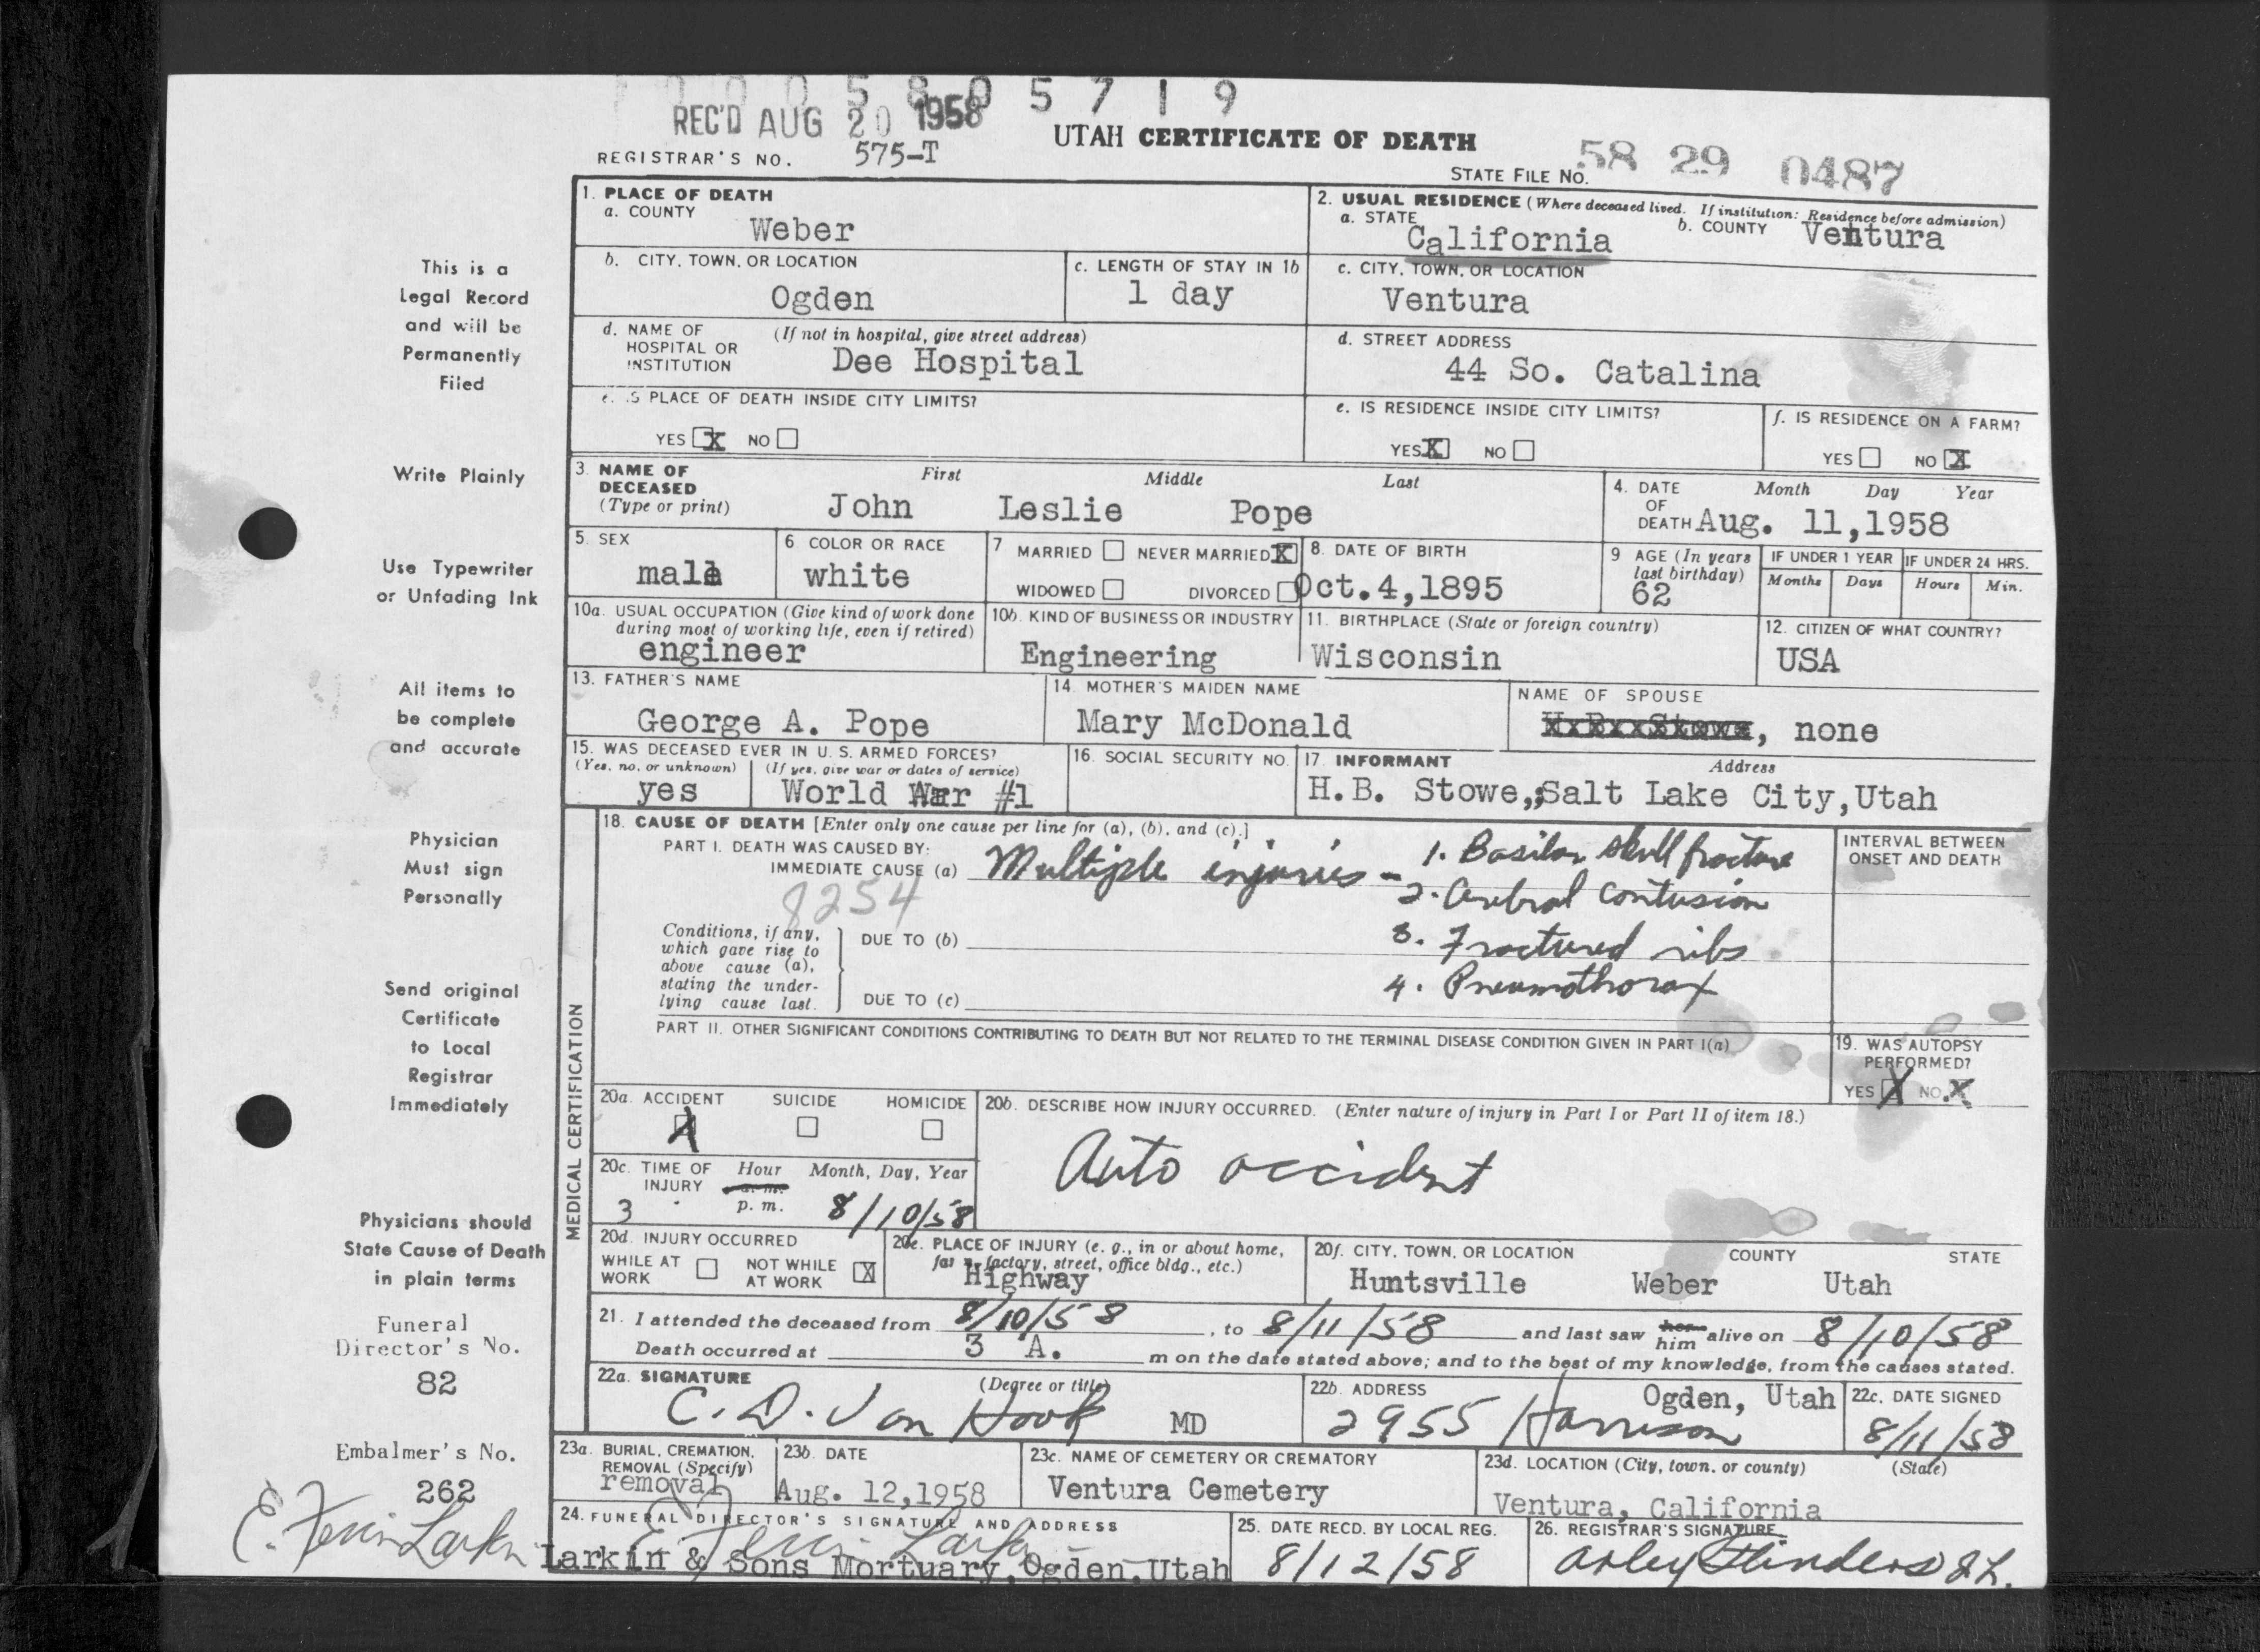 0 0 0 5 8 0 5 7 1 9
REC'D AUG 20 1958
UTAH CERTIFICATE OF DEATH
REGISTRAR'S NO. 575-T
STATE FILE NO. 58 29 0487
This is a
Legal Record
and will be
Permanently
Filed
Write Plainly
Use Typewriter
or Unfading Ink
All items to
be complete
and accurate
Physician
Must sign
Personally
Send original
Certificate
to Local
Registrar
Immediately
Physicians should
State Cause of Death
in plain terms
Funeral
Director's No.
82
Embalmer's No.
262
1. PLACE OF DEATH
a. COUNTY
Weber
2. USUAL RESIDENCE (Where deceased lived. If institution: Residence before admission)
a. STATE California b. COUNTY Ventura
b. CITY, TOWN, OR LOCATION
Ogden
c. LENGTH OF STAY IN 1b
1 day
c. CITY, TOWN, OR LOCATION
Ventura
d. NAME OF HOSPITAL OR INSTITUTION (If not in hospital, give street address)
Dee Hospital
d. STREET ADDRESS
44 So. Catalina
e. IS PLACE OF DEATH INSIDE CITY LIMITS?
YES X NO
e. IS RESIDENCE INSIDE CITY LIMITS?
YES X NO
f. IS RESIDENCE ON A FARM?
YES NO X
3. NAME OF DECEASED (Type or print) First Middle Last
John Leslie Pope
4. DATE OF DEATH Month Day Year
Aug. 11,1958
5. SEX
male
6 COLOR OR RACE
white
7 MARRIED NEVER MARRIED X
WIDOWED DIVORCED
8. DATE OF BIRTH
Oct.4,1895
9 AGE (In years last birthday)
62
IF UNDER 1 YEAR
Months Days
IF UNDER 24 HRS.
Hours Min.
10a. USUAL OCCUPATION (Give kind of work done during most of working life, even if retired)
engineer
10b. KIND OF BUSINESS OR INDUSTRY
Engineering
11. BIRTHPLACE (State or foreign country)
Wisconsin
12. CITIZEN OF WHAT COUNTRY?
USA
13. FATHER'S NAME
George A. Pope
14. MOTHER'S MAIDEN NAME
Mary McDonald
NAME OF SPOUSE
, none
15. WAS DECEASED EVER IN U. S. ARMED FORCES?
(Yes, no, or unknown) (If yes, give war or dates of service)
yes World War #1
16. SOCIAL SECURITY NO.
17. INFORMANT Address
H.B. Stowe,;Salt Lake City,Utah
MEDICAL CERTIFICATION
18. CAUSE OF DEATH [Enter only one cause per line for (a), (b), and (c).]
PART I. DEATH WAS CAUSED BY:
IMMEDIATE CAUSE (a) Multiple injuries - 1. Basilar skull fracture
8254
2. Cerebral contusion
3. Fractured ribs
4. Pneumothorax
Conditions, if any, which gave rise to above cause (a), stating the underlying cause last.
DUE TO (b)
DUE TO (c)
INTERVAL BETWEEN ONSET AND DEATH
PART II. OTHER SIGNIFICANT CONDITIONS CONTRIBUTING TO DEATH BUT NOT RELATED TO THE TERMINAL DISEASE CONDITION GIVEN IN PART I(a)
19. WAS AUTOPSY PERFORMED?
YES X NO X
20a. ACCIDENT SUICIDE HOMICIDE
X
20b. DESCRIBE HOW INJURY OCCURRED. (Enter nature of injury in Part I or Part II of item 18.)
Auto accident
20c. TIME OF INJURY Hour Month, Day, Year
a. m.
3 p. m. 8/10/58
20d. INJURY OCCURRED
WHILE AT WORK NOT WHILE AT WORK X
20e. PLACE OF INJURY (e. g., in or about home, farm, factory, street, office bldg., etc.)
Highway
20f. CITY, TOWN, OR LOCATION COUNTY STATE
Huntsville Weber Utah
21. I attended the deceased from 8/10/58, to 8/11/58 and last saw her him alive on 8/10/58
Death occurred at 3 A. m on the date stated above; and to the best of my knowledge, from the causes stated.
22a. SIGNATURE (Degree or title)
C. D. Van Hook MD
22b. ADDRESS
Ogden, Utah
2955 Harrison
22c. DATE SIGNED
8/11/58
23a. BURIAL, CREMATION, REMOVAL (Specify)
removal
23b. DATE
Aug. 12,1958
23c. NAME OF CEMETERY OR CREMATORY
Ventura Cemetery
23d. LOCATION (City, town, or county) (State)
Ventura, California
24. FUNERAL DIRECTOR'S SIGNATURE AND ADDRESS
Larkin & Sons Mortuary,Ogden,Utah
25. DATE RECD. BY LOCAL REG.
8/12/58
26. REGISTRAR'S SIGNATURE